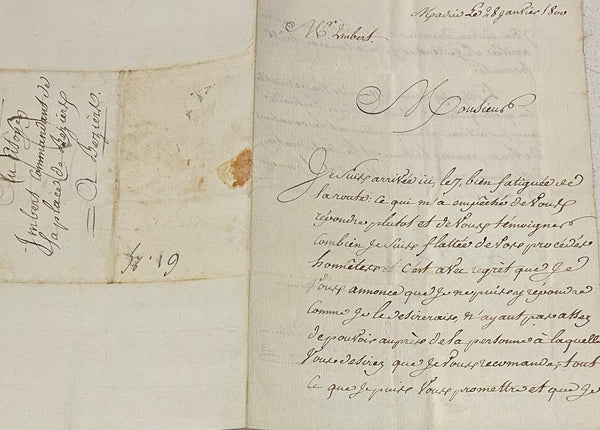 Au Citoyen
Imbert Commandant de
la place de Beziers
A Beziers.
Madrid Le 28 janvier 1800
Mr. Imbert.
Monsieur
Je suis arrivée ici, le 7, bien fatiguée de
la route: ce qui m'a empêché de vous
répondre plutot et de vous témoigner
combien je suis flattée de vos procédés
honnêtes: C'est avec regrêt que je
vous annonce que je ne puis y répondre
comme je le desirerais, n'ayant pas assez
de pouvoir auprès de la personne à laquelle
vous desirez que je vous recomande; tout
ce que je puis vous promettre est que je